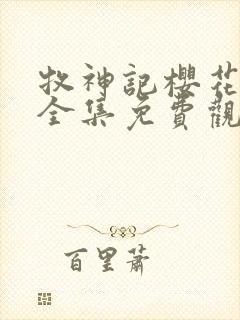 牧神記櫻花
全集免費觀
百里蕭